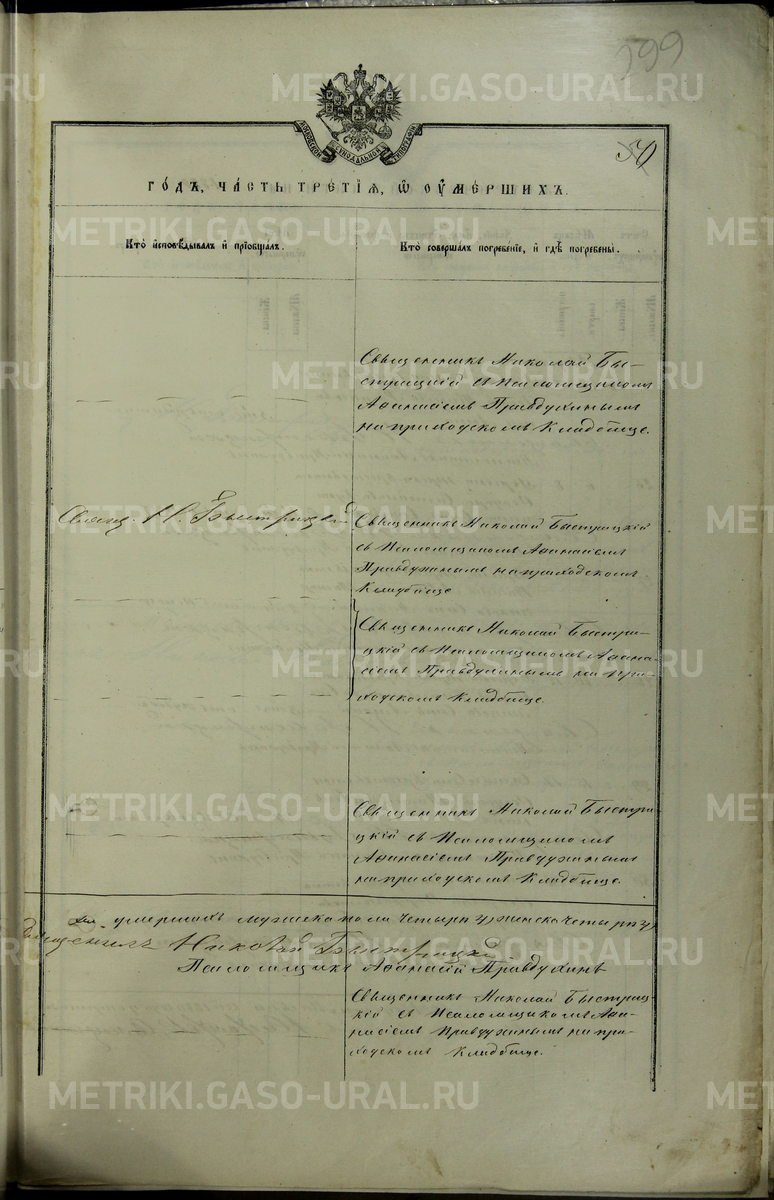 299
50
МОСКОВСКОЙ СѴНОДАЛЬНОЙ ТИПОГРАФІИ
ГОДЪ, ЧАСТЬ ТРЕТІЯ, Ѿ ОУМЕРШИХЪ.
Кто исповѣдывалъ и пріобщалъ.
Кто совершалъ погребеніе, и гдѣ погребены.
Священникъ Николай Бы-
стрицкій съ Псаломщикомъ
Аѳанасіемъ Правдухинымъ
на приходскомъ Кладбище.
Свящ. Н. Быстрицкій
Священникъ Николай Быстрицкій
съ Псаломщикомъ Аѳанасіемъ
Правдухинымъ на приходскомъ
Кладбище
Священникъ Николай Быстри-
цкій съ Псаломщикомъ Аѳана-
сіемъ Правдухинымъ на при-
ходскомъ Кладбище.
Священникъ Николай Быстри
цкій съ Псаломщикомъ
Аѳанасіемъ Правдухинымъ
на приходскомъ Кладбище.
умершихъ мужска пола четыри 4, женска четыри 4
Священникъ Николай Быстрицкій
Псаломщикъ Аѳанасій Правдухинъ
Священникъ Николай Быстриц-
кій съ Псаломщикомъ Аѳа-
насіемъ Правдухинымъ на при-
ходскомъ Кладбище.
METRIKI.GASO-URAL.RU